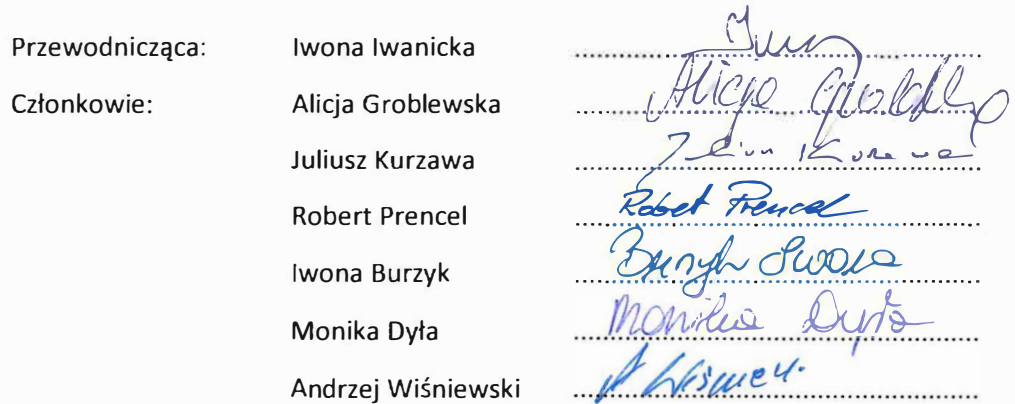 Przewodnicząca: Iwona Iwanicka ........................
Członkowie: Alicja Groblewska Alicja
Juliusz Kurzawa
Robert Prencel Robert Prencel
Iwona Burzyk Burzyk Iwona
Monika Dyła Monika Dyła
Andrzej Wiśniewski A